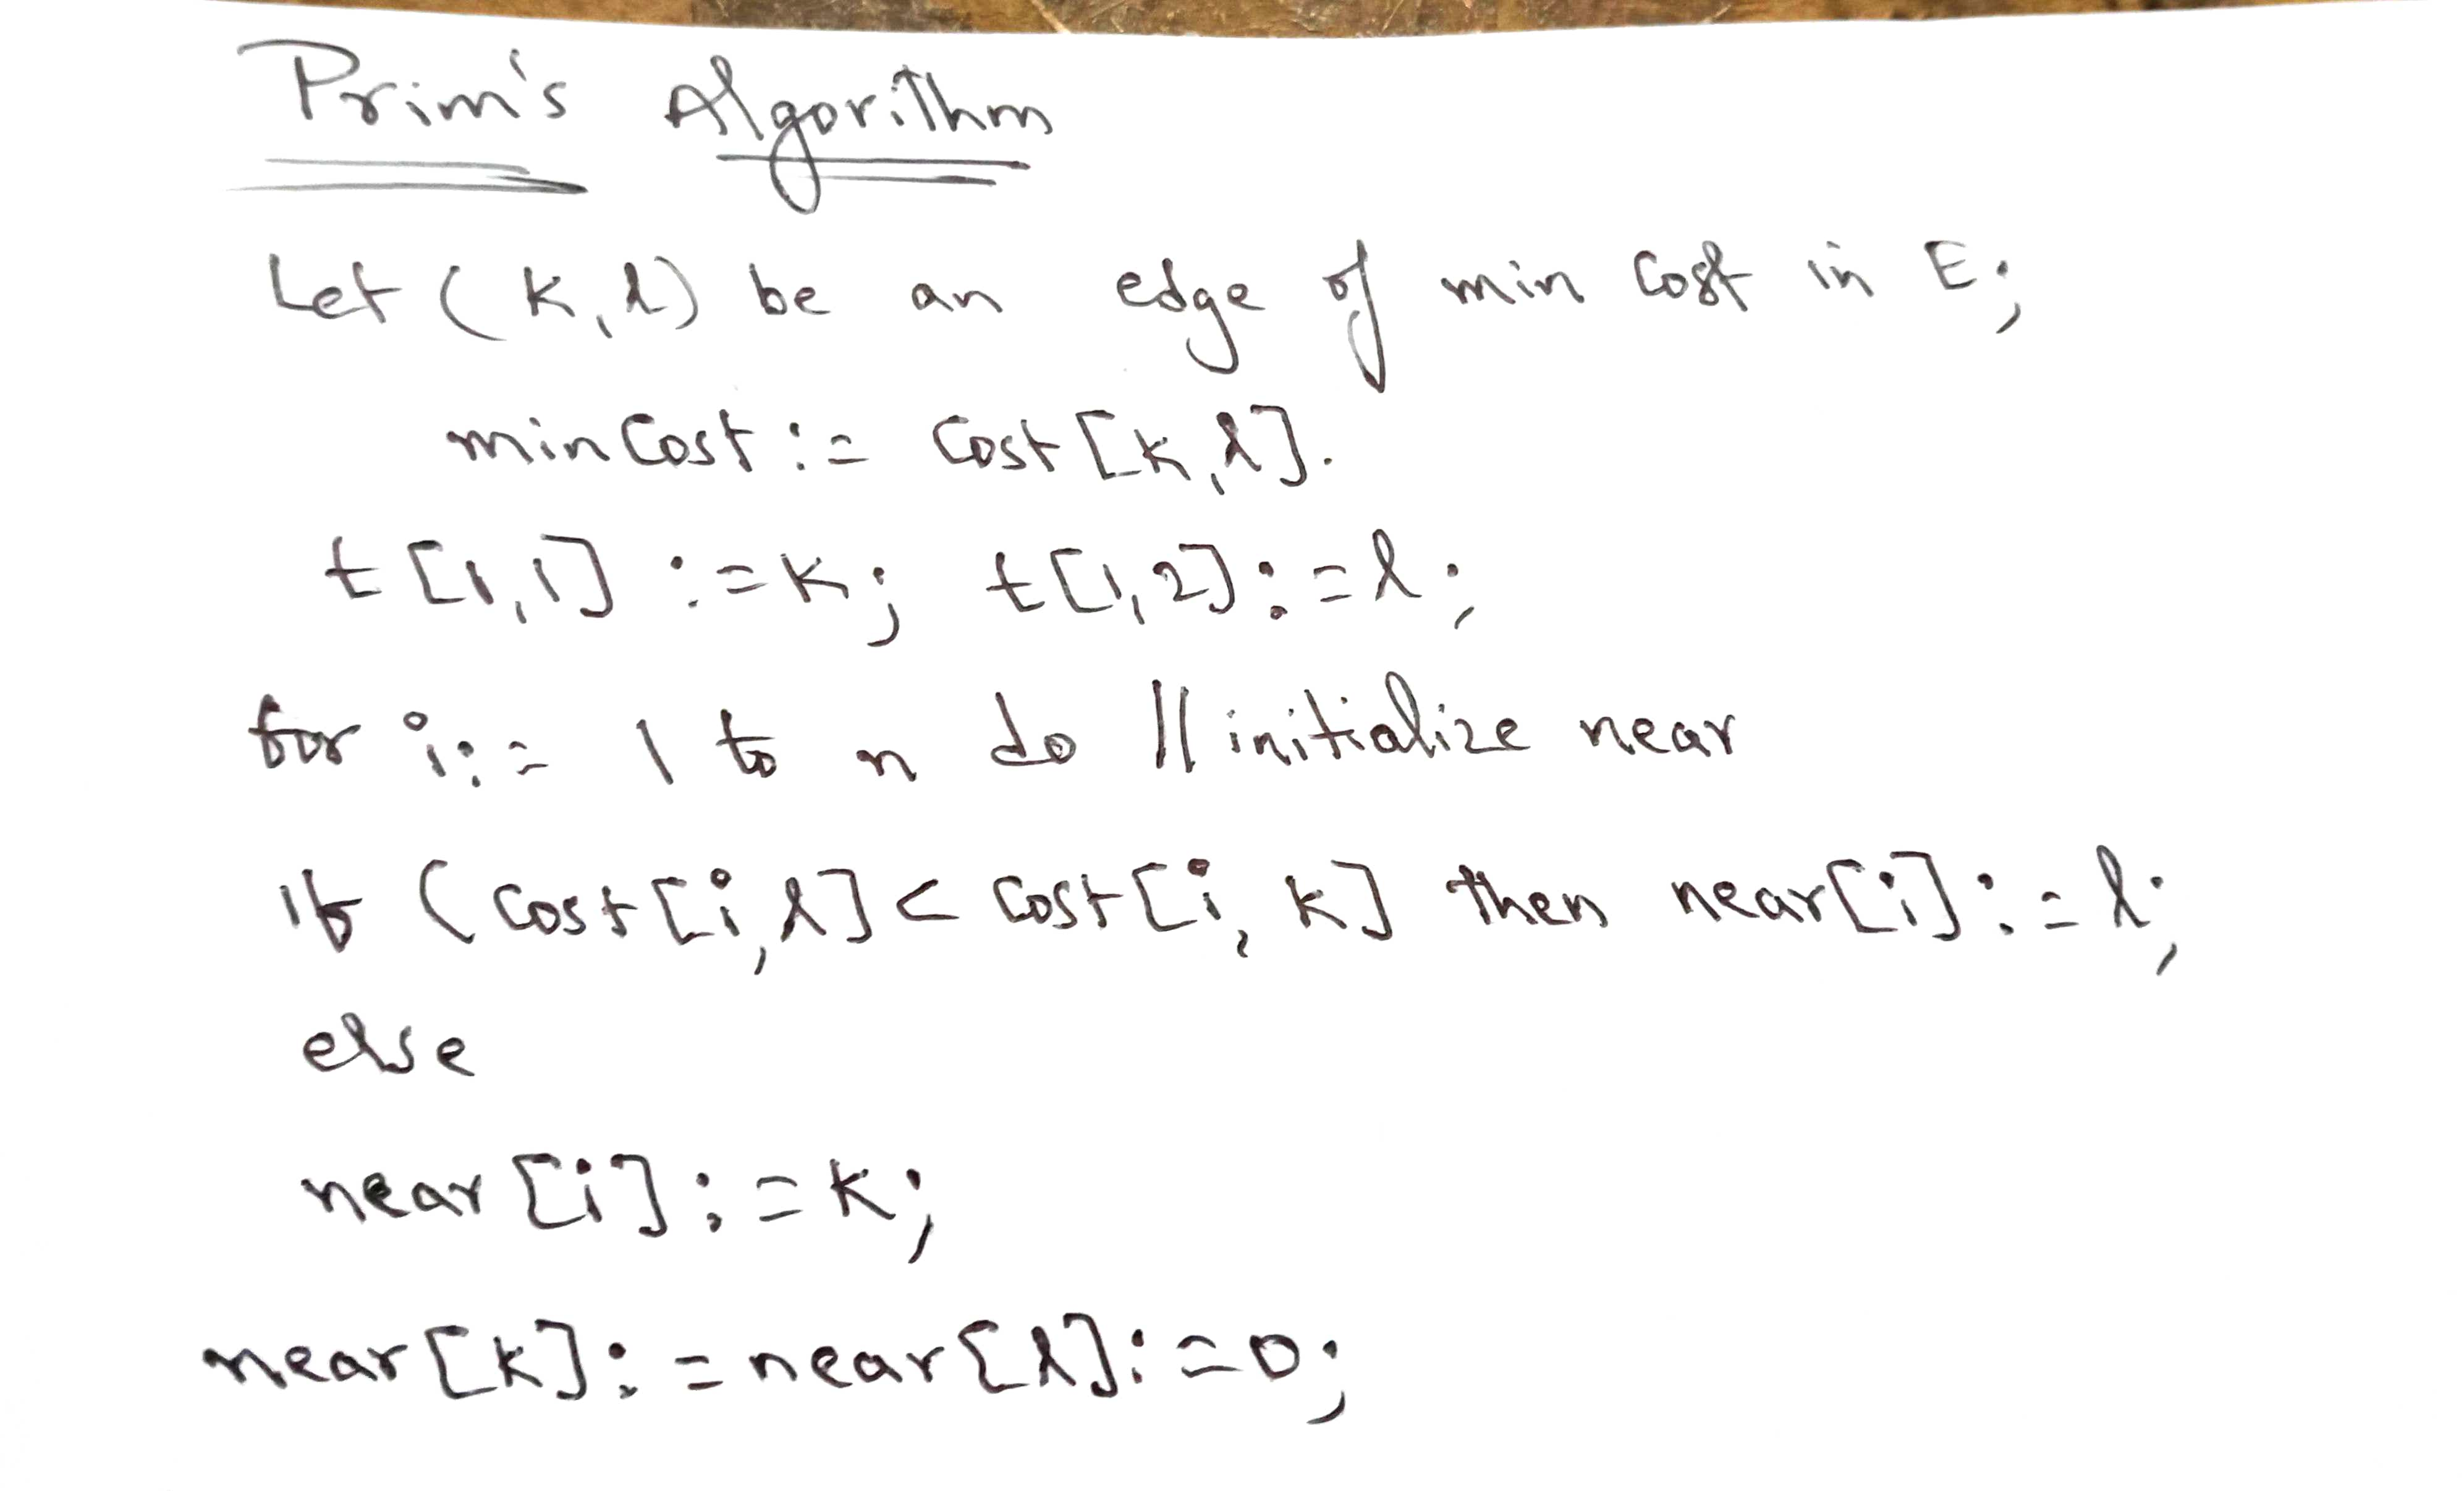 Prim's Algorithm
Let (k,l) be an edge of min cost in E;
mincost := cost[k,l].
t[1,1] := k; t[1,2] := l;
for i := 1 to n do // initialize near
if (cost[i,l] < cost[i,k] then near[i] := l;
else
near[i] := k;
near[k] := near[l] := 0;